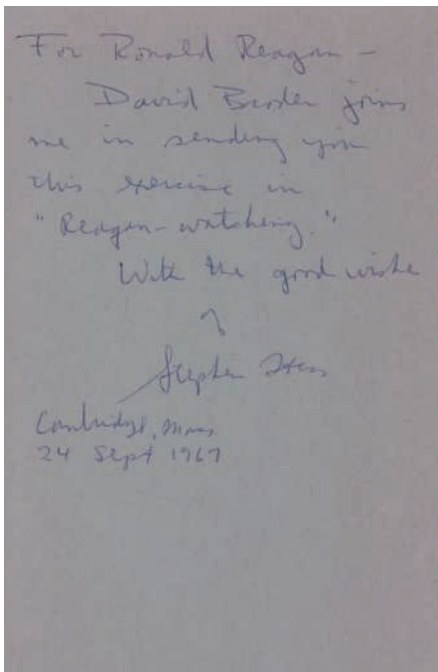 For Ronald Reagan -
David Broder joins
me in sending you
this exercise in
"Reagan-watching."
With the good wishes
of
Stephen Hess
Cambridge, Mass.
24 Sept 1967